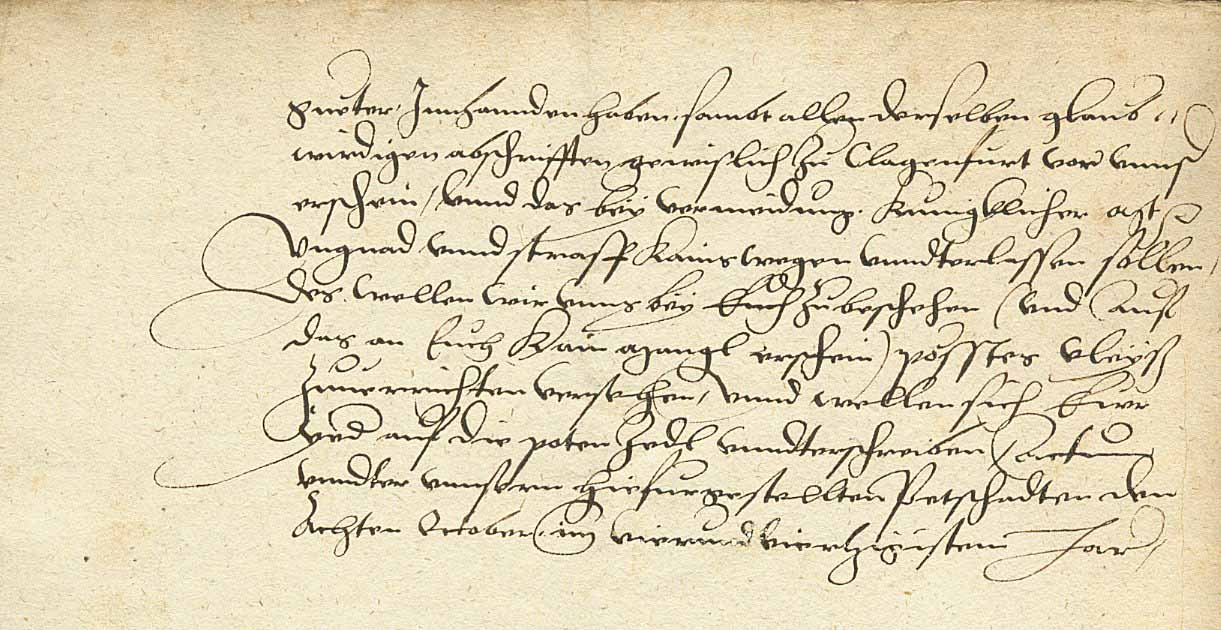 gueter, Innhannden haben, sambt allen derselben glaub-
wirdigen abschrifften gewislich zu Clagenfurt vor unns
erschein, unnd das bey vermeidung Kunigklicher Mt
Ungnad unnd straff kains wegen unndterlassen sollen,
Des wellen wir unns bey Euch zubeschehen (und auf
das an Euch kain mangl erschein) posstes vleyß
zuuerrichten versehen, unnd wellen sich Eur
yed auf die poten zedl unndterschreiben, Actum
unndter unnsern hiefurgestellten Petschadten den
Achten October im vierundviertzigisten Jar,